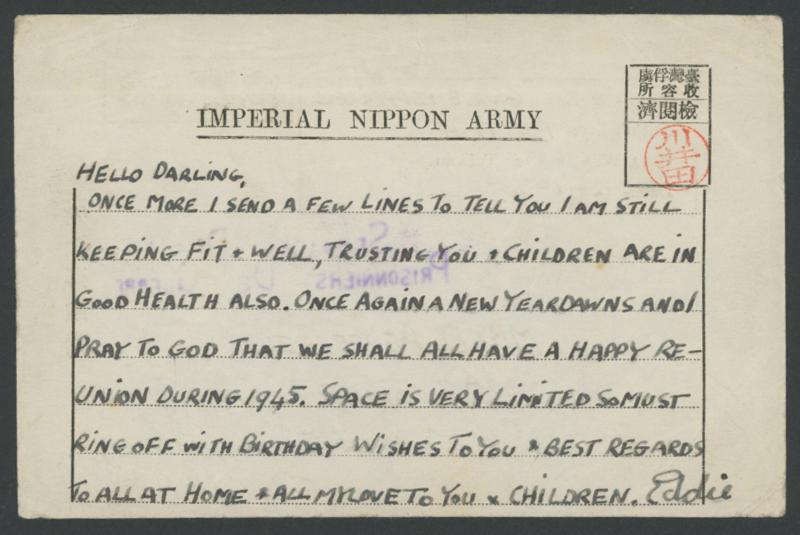 IMPERIAL NIPPON ARMY
臺灣俘虜
收容所
檢閱濟
川井田
HELLO DARLING,
ONCE MORE I SEND A FEW LINES TO TELL YOU I AM STILL
KEEPING FIT + WELL, TRUSTING YOU + CHILDREN ARE IN
GOOD HEALTH ALSO. ONCE AGAIN A NEW YEAR DAWNS AND I
PRAY TO GOD THAT WE SHALL ALL HAVE A HAPPY RE-
UNION DURING 1945. SPACE IS VERY LIMITED SO MUST
RING OFF WITH BIRTHDAY WISHES TO YOU + BEST REGARDS
TO ALL AT HOME + ALL MY LOVE TO YOU + CHILDREN. Eddie